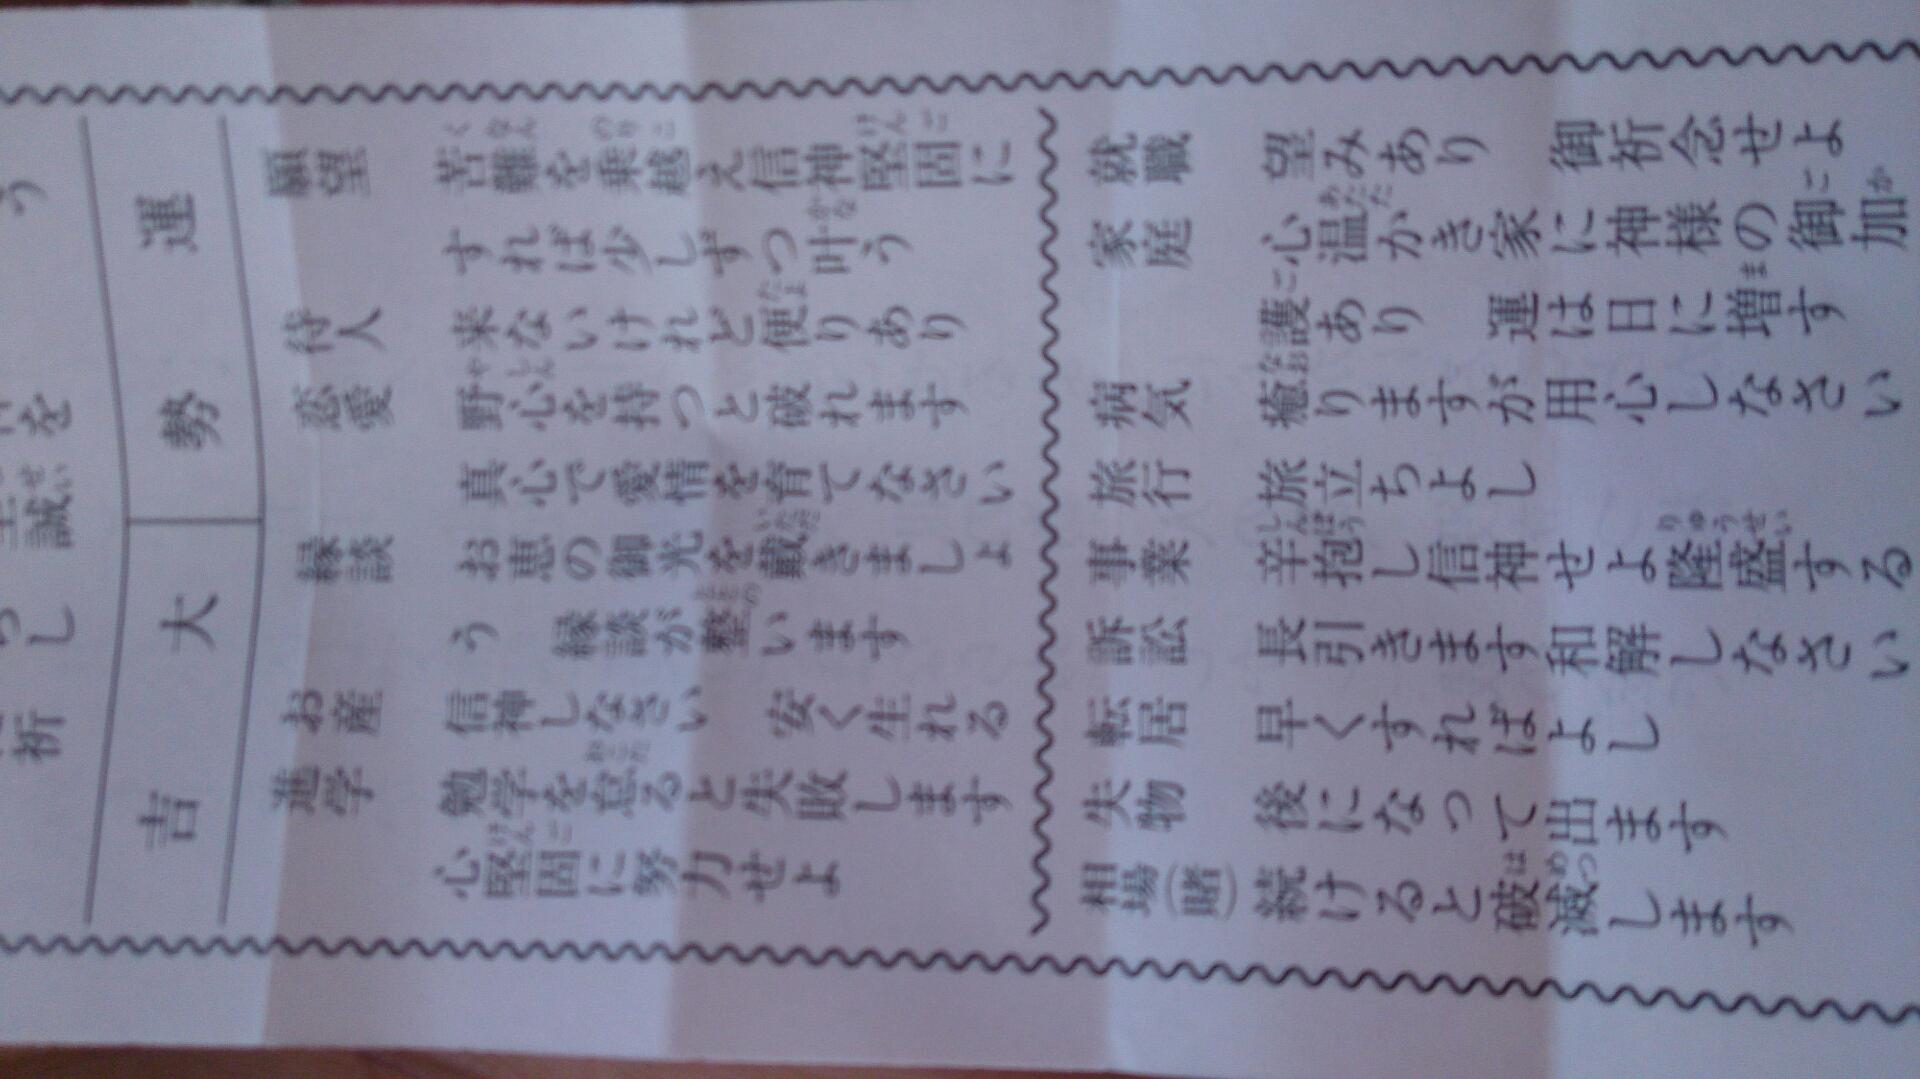 運勢 大吉
願望 苦難を乗越え信神堅固に
すれば少しずつ叶う
待人 来ないけれど便りあり
恋愛 野心を持つと破れます
真心で愛情を育てなさい
縁談 お恵の御光を戴きましょ
う 縁談が整います
お産 信神しなさい 安く生れる
進学 勉学を怠ると失敗します
心堅固に努力せよ
就職 望みあり 御祈念せよ
家庭 心温かき家に神様の御加
護あり 運は日に増す
病気 癒りますが用心しなさい
旅行 旅立ちよし
事業 辛抱し信神せよ隆盛する
訴訟 長引きます和解しなさい
転居 早くすればよし
失物 後になって出ます
相場(賭) 続けると破滅します